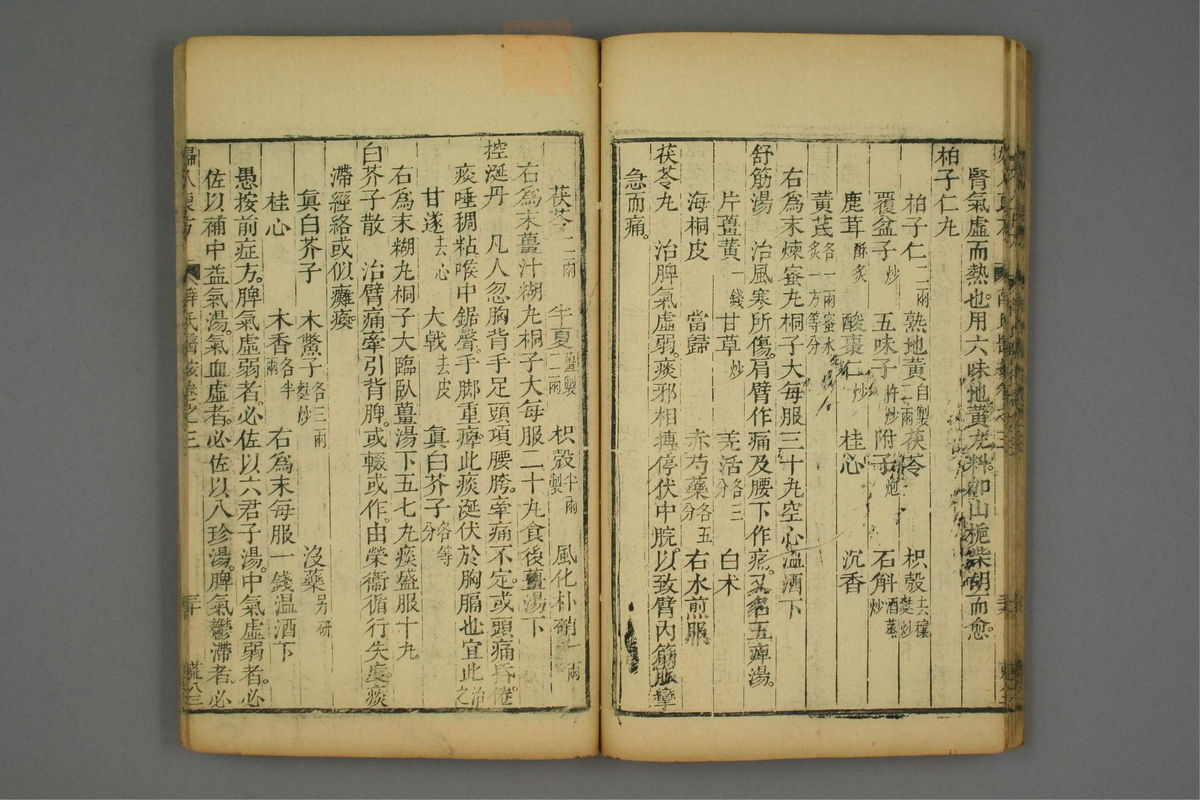 腎氣虛而熱也。用六味地黃丸料加山梔柴胡而愈。
柏子仁丸
柏子仁二兩 熟地黃自製二兩 茯苓 枳殼去穰麩炒
覆盆子炒 五味子炒 附子炮 石斛酒蒸炒
鹿茸酥炙 酸棗仁炒 桂心 沉香
黃芪各一兩蜜水炙一方等分
右為末煉蜜丸桐子大每服三十丸空心溫酒下
舒筋湯 治風寒所傷。肩臂作痛及腰下作痛。又名五痺湯。
片薑黃一錢 甘草炒 羌活各三分 白术
海桐皮 當歸 赤芍藥各五分 右水煎服
茯苓丸 治脾氣虛弱。痰邪相搏停伏中脘。以致臂內筋脈攣
急而痛。
茯苓二兩 半夏薑製二兩 枳殼半兩製 風化朴硝一兩
右為末薑汁糊丸桐子大每服二十丸食後薑湯下
控涎丹 凡人忽胸背手足頭項腰胯。牽痛不定。或頭痛昏倦。
痰唾稠粘。喉中鋸聲。手脚重痺。此痰涎伏於胸膈也宜此治之
甘遂去心 大戟去皮 真白芥子各等分
右為末糊丸桐子大臨臥薑湯下五七丸痰盛服十丸
白芥子散 治臂痛牽引背脾。或輟或作。由榮衞循行失度。痰
滯經絡或似癱瘓
真白芥子 木鱉子各三兩麩炒 沒藥另研
桂心 木香各半兩 右為末每服一錢溫酒下
愚按前症方。脾氣虛弱者。必佐以六君子湯。中氣虛弱者。必
佐以補中益氣湯。氣血虛者。必佐以八珍湯。脾氣鬱滯者。必
婦人良方 薛氏醫按卷之三 三十